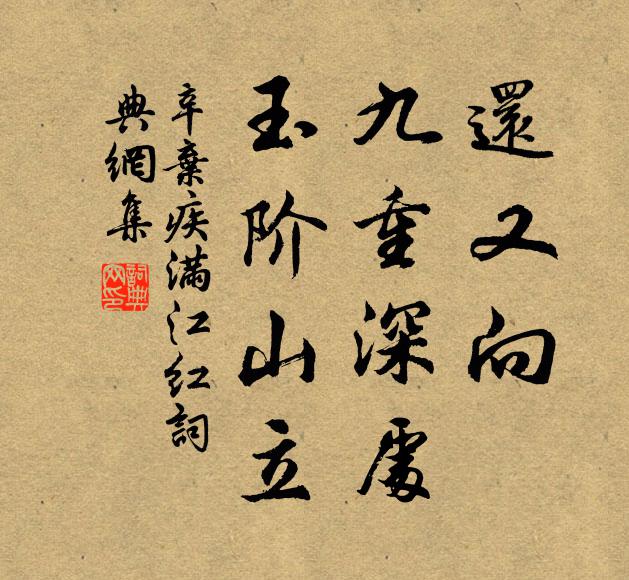 還又向
九重深處
玉阶山立
辛棄疾满江红詞
典網集
詞典
网印